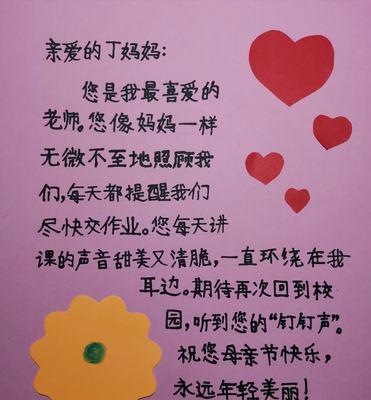 亲爱的丁妈妈:
您是我最喜爱的
老师。您像妈妈一样
无微不至地照顾我
们,每天都提醒我们
尽快交作业。您每天讲
课的声音甜美又清脆,一直环绕在我
耳边。期待再次回到校
园,听到您的“钉钉声”。
祝您母亲节快乐,
永远年轻美丽!